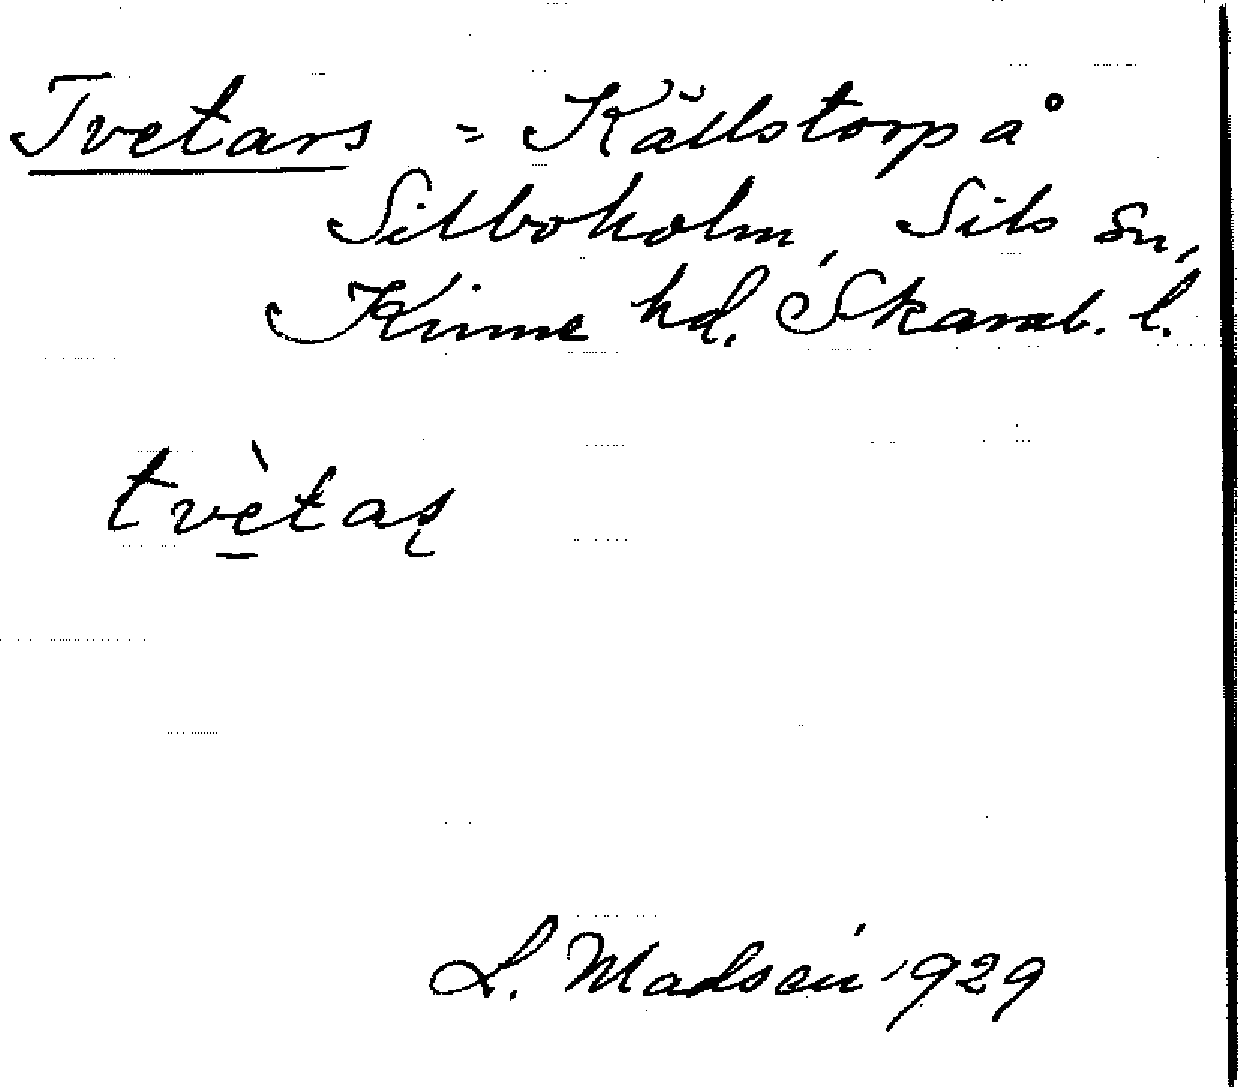 Tvetars = Källstorp å
Silboholm, Sils sn,
Kinne hd. Skarab. l.
tvètaʂ
L. Madsén 1929